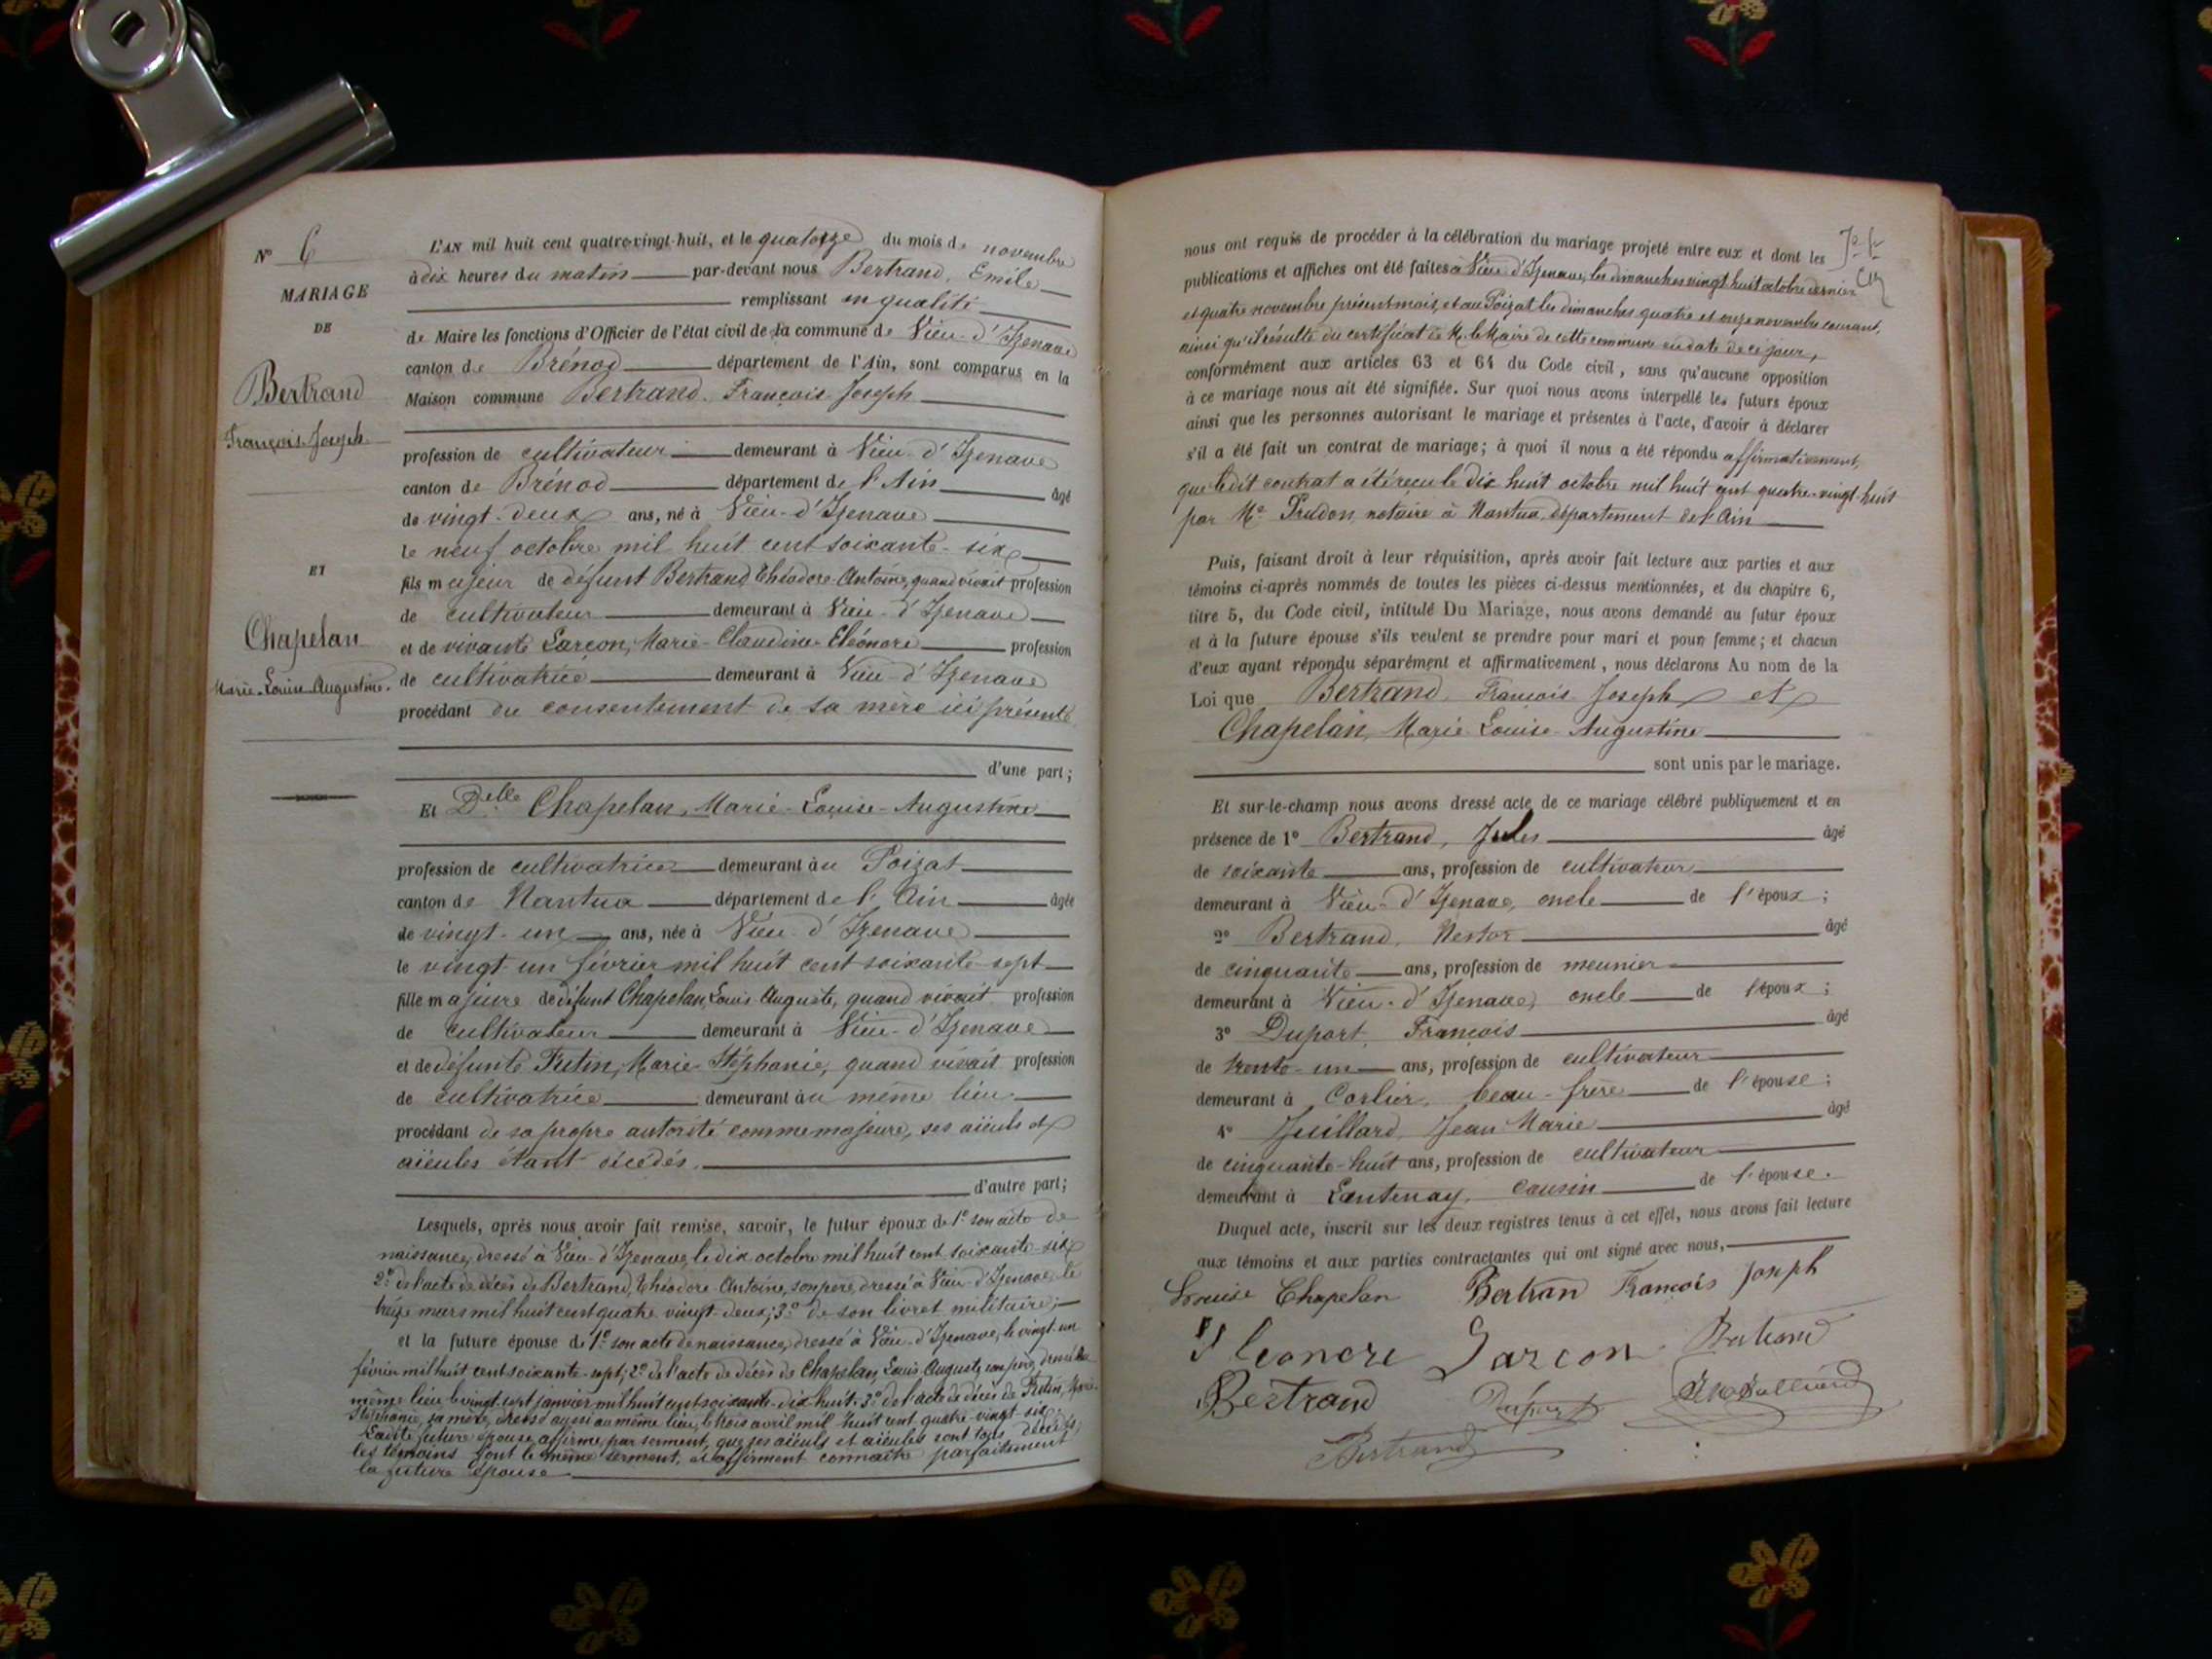 N° 6
MARIAGE
DE
Bertrand
François Joseph
ET
Chapelan
Marie-Louise-Augustine.
L'AN mil huit cent quatre-vingt-huit, et le quatorze du mois de novembre
à dix heures du matin par-devant nous Bertrand, Emile
remplissant en qualité
de Maire les fonctions d'Officier de l'état civil de la commune de Vieu-d'Izenave
canton de Brénod département de l'Ain, sont comparus en la
Maison commune Bertrand, François Joseph
profession de cultivateur demeurant à Vieu-d'Izenave
canton de Brénod département de l'Ain âgé
de vingt-deux ans, né à Vieu-d'Izenave
le neuf octobre mil huit cent soixante-six
fils majeur de défunt Bertrand Théodore-Antoine, quand vivait profession
de cultivateur demeurant à Vieu-d'Izenave
et de vivante Larcon, Marie-Claudine-Eléonore profession
de cultivatrice demeurant à Vieu-d'Izenave
procédant du consentement de sa mère ici présente
d'une part;
Et Delle Chapelan, Marie-Louise-Augustine
profession de cultivatrice demeurant au Poizat
canton de Nantua département de l'Ain âgée
de vingt-un ans, née à Vieu-d'Izenave
le vingt-un février mil huit cent soixante-sept
fille majeure de défunt Chapelan, Louis-Auguste, quand vivait profession
de cultivateur demeurant à Vieu-d'Izenave
et de défunte Futin, Marie-Stéphanie, quand vivait profession
de cultivatrice demeurant au même lieu
procédant de sa propre autorité comme majeure, ses aïeuls et
aïeules étant décédés.
d'autre part;
Lesquels, après nous avoir fait remise, savoir, le futur époux de 1° son acte de
naissance, dressé à Vieu-d'Izenave, le dix octobre mil huit cent soixante-six
2° de l'acte de décès de Bertrand, Théodore-Antoine, son père, dressé à Vieu-d'Izenave, le
treize mars mil huit cent quatre-vingt-deux; 3° de son livret militaire;
et la future épouse de 1° son acte de naissance, dressé à Vieu-d'Izenave, le vingt-un
février mil huit cent soixante-sept; 2° de l'acte de décès de Chapelan, Louis-Auguste, son père, dressé au
même lieu le vingt-sept janvier mil huit cent soixante-dix-huit. 3° de l'acte de décès de Futin, Marie-
Stéphanie, sa mère, dressé aussi au même lieu, le trois avril mil huit cent quatre-vingt-six.
Ladite future épouse affirme, par serment, que ses aïeuls et aïeules sont tous décédés;
les témoins font le même serment, et affirment connaître parfaitement
la future épouse
nous ont requis de procéder à la célébration du mariage projeté entre eux et dont les
publications et affiches ont été faites à Vieu-d'Izenave, les dimanches vingt-huit octobre dernier
et quatre novembre présent mois, et au Poizat les dimanches quatre et onze novembre courant,
ainsi qu'il résulte du certificat de M. le Maire de cette commune en date de ce jour,
conformément aux articles 63 et 64 du Code civil, sans qu'aucune opposition
à ce mariage nous ait été signifiée. Sur quoi nous avons interpellé les futurs époux
ainsi que les personnes autorisant le mariage et présentes à l'acte, d'avoir à déclarer
s'il a été fait un contrat de mariage; à quoi il nous a été répondu affirmativement,
que ledit contrat a été reçu le dix huit octobre mil huit cent quatre-vingt-huit
par Me Prudon, notaire à Nantua, département de l'Ain
Puis, faisant droit à leur réquisition, après avoir fait lecture aux parties et aux
témoins ci-après nommés de toutes les pièces ci-dessus mentionnées, et du chapitre 6,
titre 5, du Code civil, intitulé Du Mariage, nous avons demandé au futur époux
et à la future épouse s'ils veulent se prendre pour mari et pour femme; et chacun
d'eux ayant répondu séparément et affirmativement, nous déclarons Au nom de la
Loi que Bertrand, François Joseph et
Chapelan, Marie-Louise-Augustine
sont unis par le mariage.
Et sur-le-champ nous avons dressé acte de ce mariage célébré publiquement et en
présence de 1° Bertrand, Jules âgé
de soixante ans, profession de cultivateur
demeurant à Vieu-d'Izenave, oncle de l'époux;
2° Bertrand, Nestor âgé
de cinquante ans, profession de meunier
demeurant à Vieu-d'Izenave, oncle de l'époux;
3° Duport, François âgé
de trente-un ans, profession de cultivateur
demeurant à Corlier, beau-frère de l'épouse;
4° Juillard, Jean Marie âgé
de cinquante-huit ans, profession de cultivateur
demeurant à Lantenay, cousin de l'épouse.
Duquel acte, inscrit sur les deux registres tenus à cet effet, nous avons fait lecture
aux témoins et aux parties contractantes qui ont signé avec nous,
Louise Chapelan Bertran François Joseph
Eleonore Larcon Bertrand
Bertrand Duport JM Julliard
Bertrand